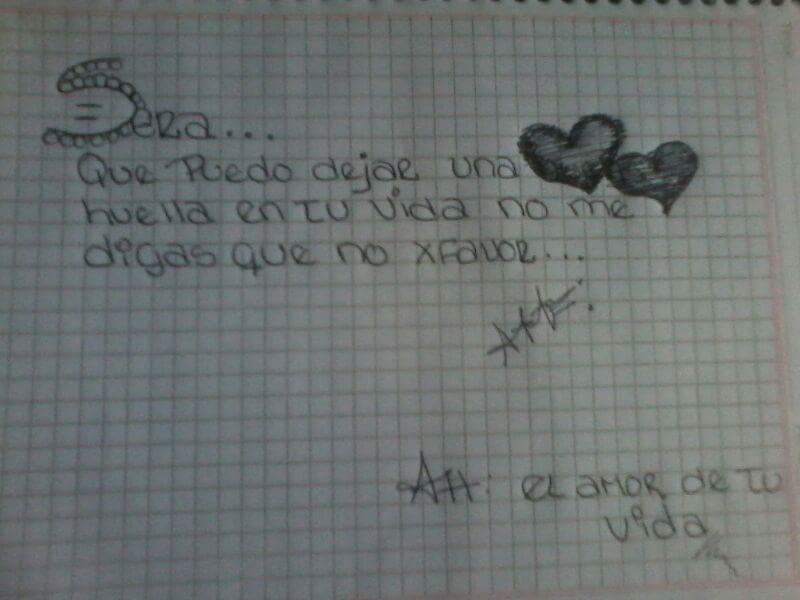 Sera...
Que Puedo dejar una
huella en tu vida no me
digas que no xfavor...
Atte:
Att: el amor de tu
vida